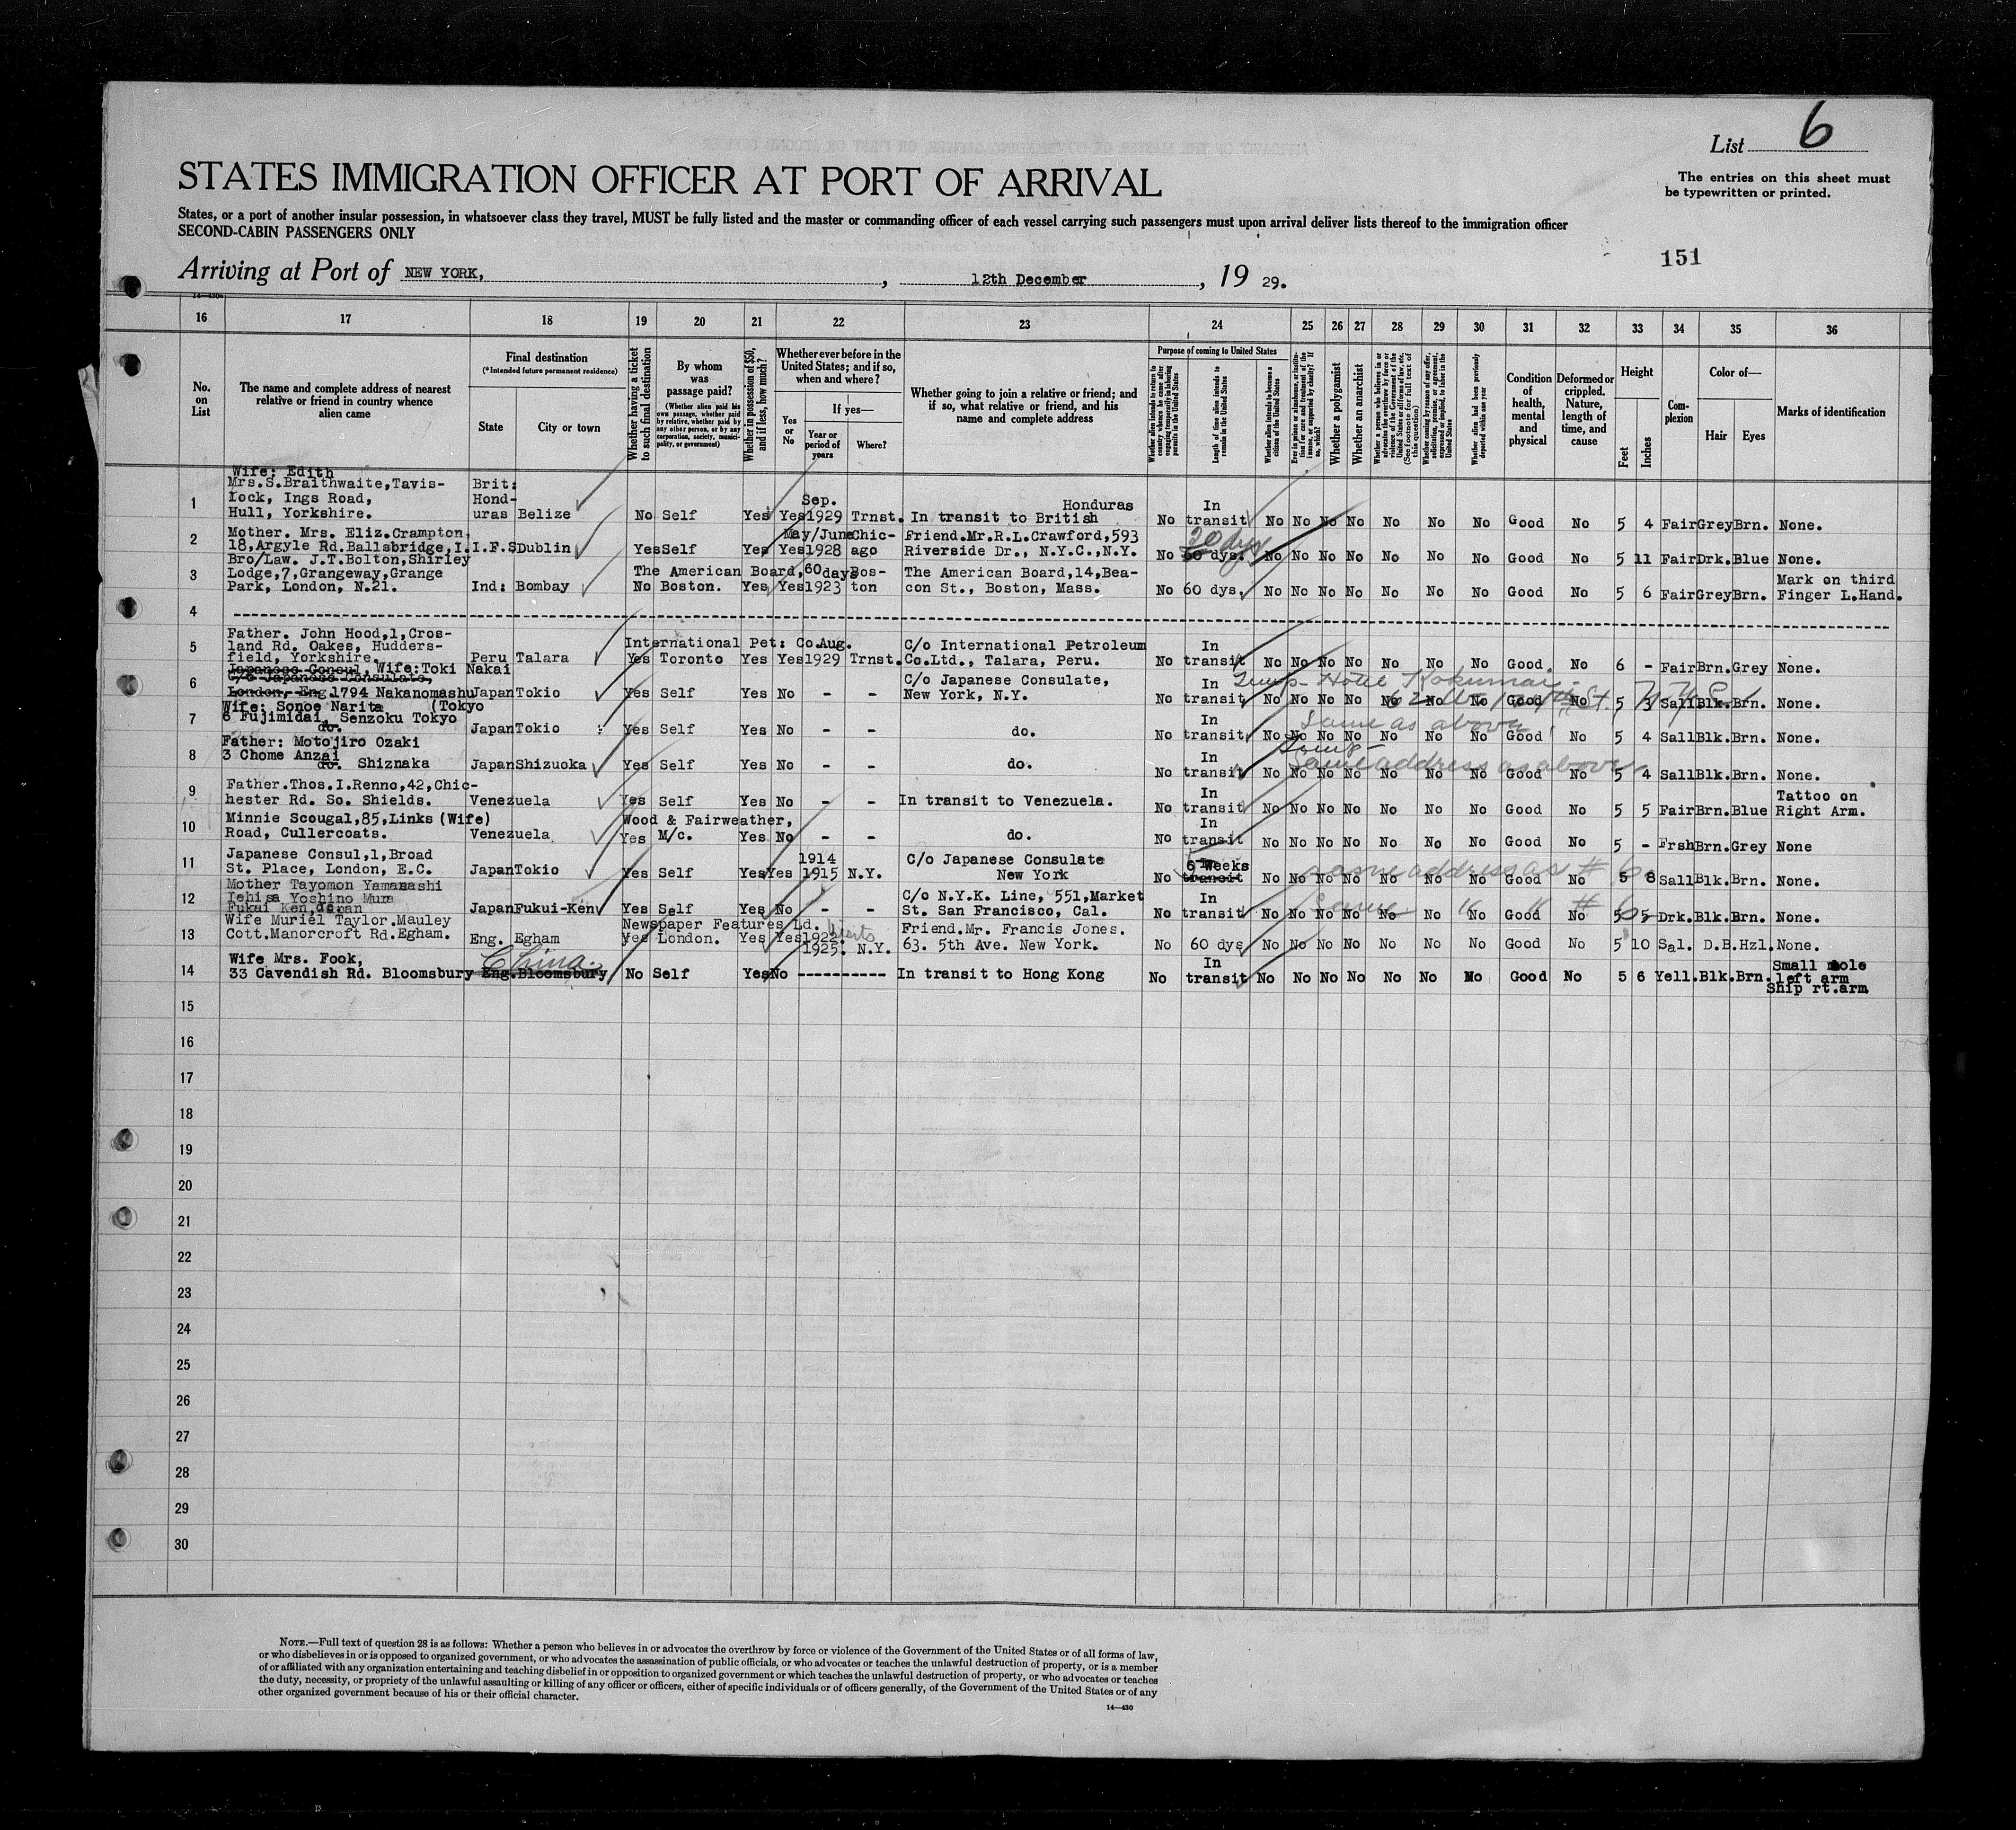 List 6
The entries on this sheet must
be typewritten or printed.
STATES IMMIGRATION OFFICER AT PORT OF ARRIVAL
States, or a port of another insular possession, in whatsoever class they travel, MUST be fully listed and the master or commanding officer of each vessel carrying such passengers must upon arrival deliver lists thereof to the immigration officer
SECOND-CABIN PASSENGERS ONLY
151
Arriving at Port of NEW YORK, , 12th December , 19 29.
14-430a
16 17 18 19 20 21 22 23 24 25 26 27 28 29 30 31 32 33 34 35 36
No. on List
The name and complete address of nearest relative or friend in country whence alien came
Final destination
(*Intended future permanent residence)
State
City or town
Whether having a ticket to such final destination
By whom was passage paid?
(Whether alien paid his own passage, whether paid by relative, whether paid by any other person, or by any corporation, society, municipality, or government)
Whether in possession of $50, and if less, how much?
Whether ever before in the United States; and if so, when and where?
Yes or No
If yes—
Year or period of years
Where?
Whether going to join a relative or friend; and if so, what relative or friend, and his name and complete address
Purpose of coming to United States
Whether alien intends to return to country whence he came after engaging temporarily in laboring pursuits in the United States
Length of time alien intends to remain in the United States
Whether alien intends to become a citizen of the United States
Ever in prison or almshouse, or institution for care and treatment of the insane, or supported by charity? If so, which?
Whether a polygamist
Whether an anarchist
Whether a person who believes in or advocates the overthrow by force or violence of the Government of the United States or all forms of law, etc. (See footnote for full text of this question)
Whether coming by reason of any offer, solicitation, promise, or agreement, expressed or implied, to labor in the United States
Whether alien had been previously deported within one year
Condition of health, mental and physical
Deformed or crippled. Nature, length of time, and cause
Height
Feet
Inches
Complexion
Color of—
Hair
Eyes
Marks of identification
Wife: Edith
Mrs.S.Braithwaite,Tavis- Brit:
rock, Ings Road, Hond- Sep. Honduras In
1 Hull, Yorkshire. uras Belize No Self Yes Yes 1929 Trnst. In transit to British No transit No No No No No No No Good No 5 4 Fair Grey Brn. None.
Mother. Mrs. Eliz.Crampton, May/June Chic- Friend.Mr.R.L.Crawford,593 30 dys
2 18,Argyle Rd.Ballsbridge,I. I.F.S Dublin Yes Self Yes Yes 1928 ago Riverside Dr., N.Y.C.,N.Y. No 60 dys. No No No No No No No Good No 5 11 Fair Drk. Blue None.
Bro/Law. J.T.Bolton,Shirley
Lodge,7,Grangeway,Grange The American Board, 60 days Bos- The American Board,14,Bea- Mark on third
3 Park, London, N.21. Ind: Bombay No Boston. Yes Yes 1923 ton con St., Boston, Mass. No 60 dys. No No No No No No No Good No 5 6 Fair Grey Brn. Finger L.Hand.
4
Father. John Hood,1,Cros-
land Rd. Oakes, Hudders- International Pet: Co. Aug. C/o International Petroleum In
5 field, Yorkshire. Peru Talara Yes Toronto Yes Yes 1929 Trnst. Co.Ltd., Talara, Peru. No transit No No No No No No No Good No 6 - Fair Brn. Grey None.
Japanese Consul, Wife:Toki Nakai
C/o Japanese Consulate, C/o Japanese Consulate, In Temp- Hotel Kokumai
6 London, Eng. 1794 Nakanomashu Japan Tokio Yes Self Yes No - - New York, N.Y. No transit No No No No No No No Good No 5 3 Sall Blk. Brn. None.
Wife: Sonoe Narita (Tokyo
6 Fujimidai, Senzoku Tokyo In same as above
7 do. Japan Tokio Yes Self Yes No - - do. No transit No No No No No No No Good No 5 4 Sall Blk. Brn. None.
Father: Motojiro Ozaki Temp-
3 Chome Anzai In same address as above
8 do. Shiznaka Japan Shizuoka Yes Self Yes No - - do. No transit No No No No No No No Good No 5 4 Sall Blk. Brn. None.
Father.Thos.I.Renno,42,Chic- In Tattoo on
9 hester Rd. So. Shields. Venezuela Yes Self Yes No - - In transit to Venezuela. No transit No No No No No No No Good No 5 5 Fair Brn. Blue Right Arm.
Minnie Scougal,85,Links (Wife) Wood & Fairweather, In
10 Road, Cullercoats. Venezuela Yes M/c. Yes No - - do. No transit No No No No No No No Good No 5 - Frsh Brn. Grey None
Japanese Consul,1,Broad 1914 C/o Japanese Consulate 6 Weeks In same address as # 6
11 St. Place, London, E.C. Japan Tokio Yes Self Yes Yes 1915 N.Y. New York No transit No No No No No No No Good No 5 8 Sall Blk. Brn. None.
Mother Tayomon Yamanashi
Ichisa Yoshino Mura C/o N.Y.K. Line, 551,Market In same " " # 6
12 Fukui Ken Japan do. Japan Fukui-Ken Yes Self Yes No - - St. San Francisco, Cal. No transit No No No No No No No Good No 5 5 Drk. Blk. Brn. None.
Wife Muriel Taylor.Mauley Newspaper Features Ld. visits Friend.Mr. Francis Jones.
13 Cott.Manorcroft Rd.Egham. Eng. Egham Yes London. Yes Yes 1922. 1925. N.Y. 63. 5th Ave. New York. No 60 dys No No No No No No No Good No 5 10 Sal. D.B. Hzl. None.
Wife Mrs. Fook, China In Small mole
14 33 Cavendish Rd. Bloomsbury Eng. Bloomsbury No Self Yes No ---------- In transit to Hong Kong No transit No No No No No No No Good No 5 6 Yell. Blk. Brn. left arm
Ship rt.arm
15
16
17
18
19
20
21
22
23
24
25
26
27
28
29
30
NOTE.—Full text of question 28 is as follows: Whether a person who believes in or advocates the overthrow by force or violence of the Government of the United States or of all forms of law,
or who disbelieves in or is opposed to organized government, or who advocates the assassination of public officials, or who advocates or teaches the unlawful destruction of property, or is a member
of or affiliated with any organization entertaining and teaching disbelief in or opposition to organized government or which teaches the unlawful destruction of property, or who advocates or teaches
the duty, necessity, or propriety of the unlawful assaulting or killing of any officer or officers, either of specific individuals or of officers generally, of the Government of the United States or of any
other organized government because of his or their official character.
14—430